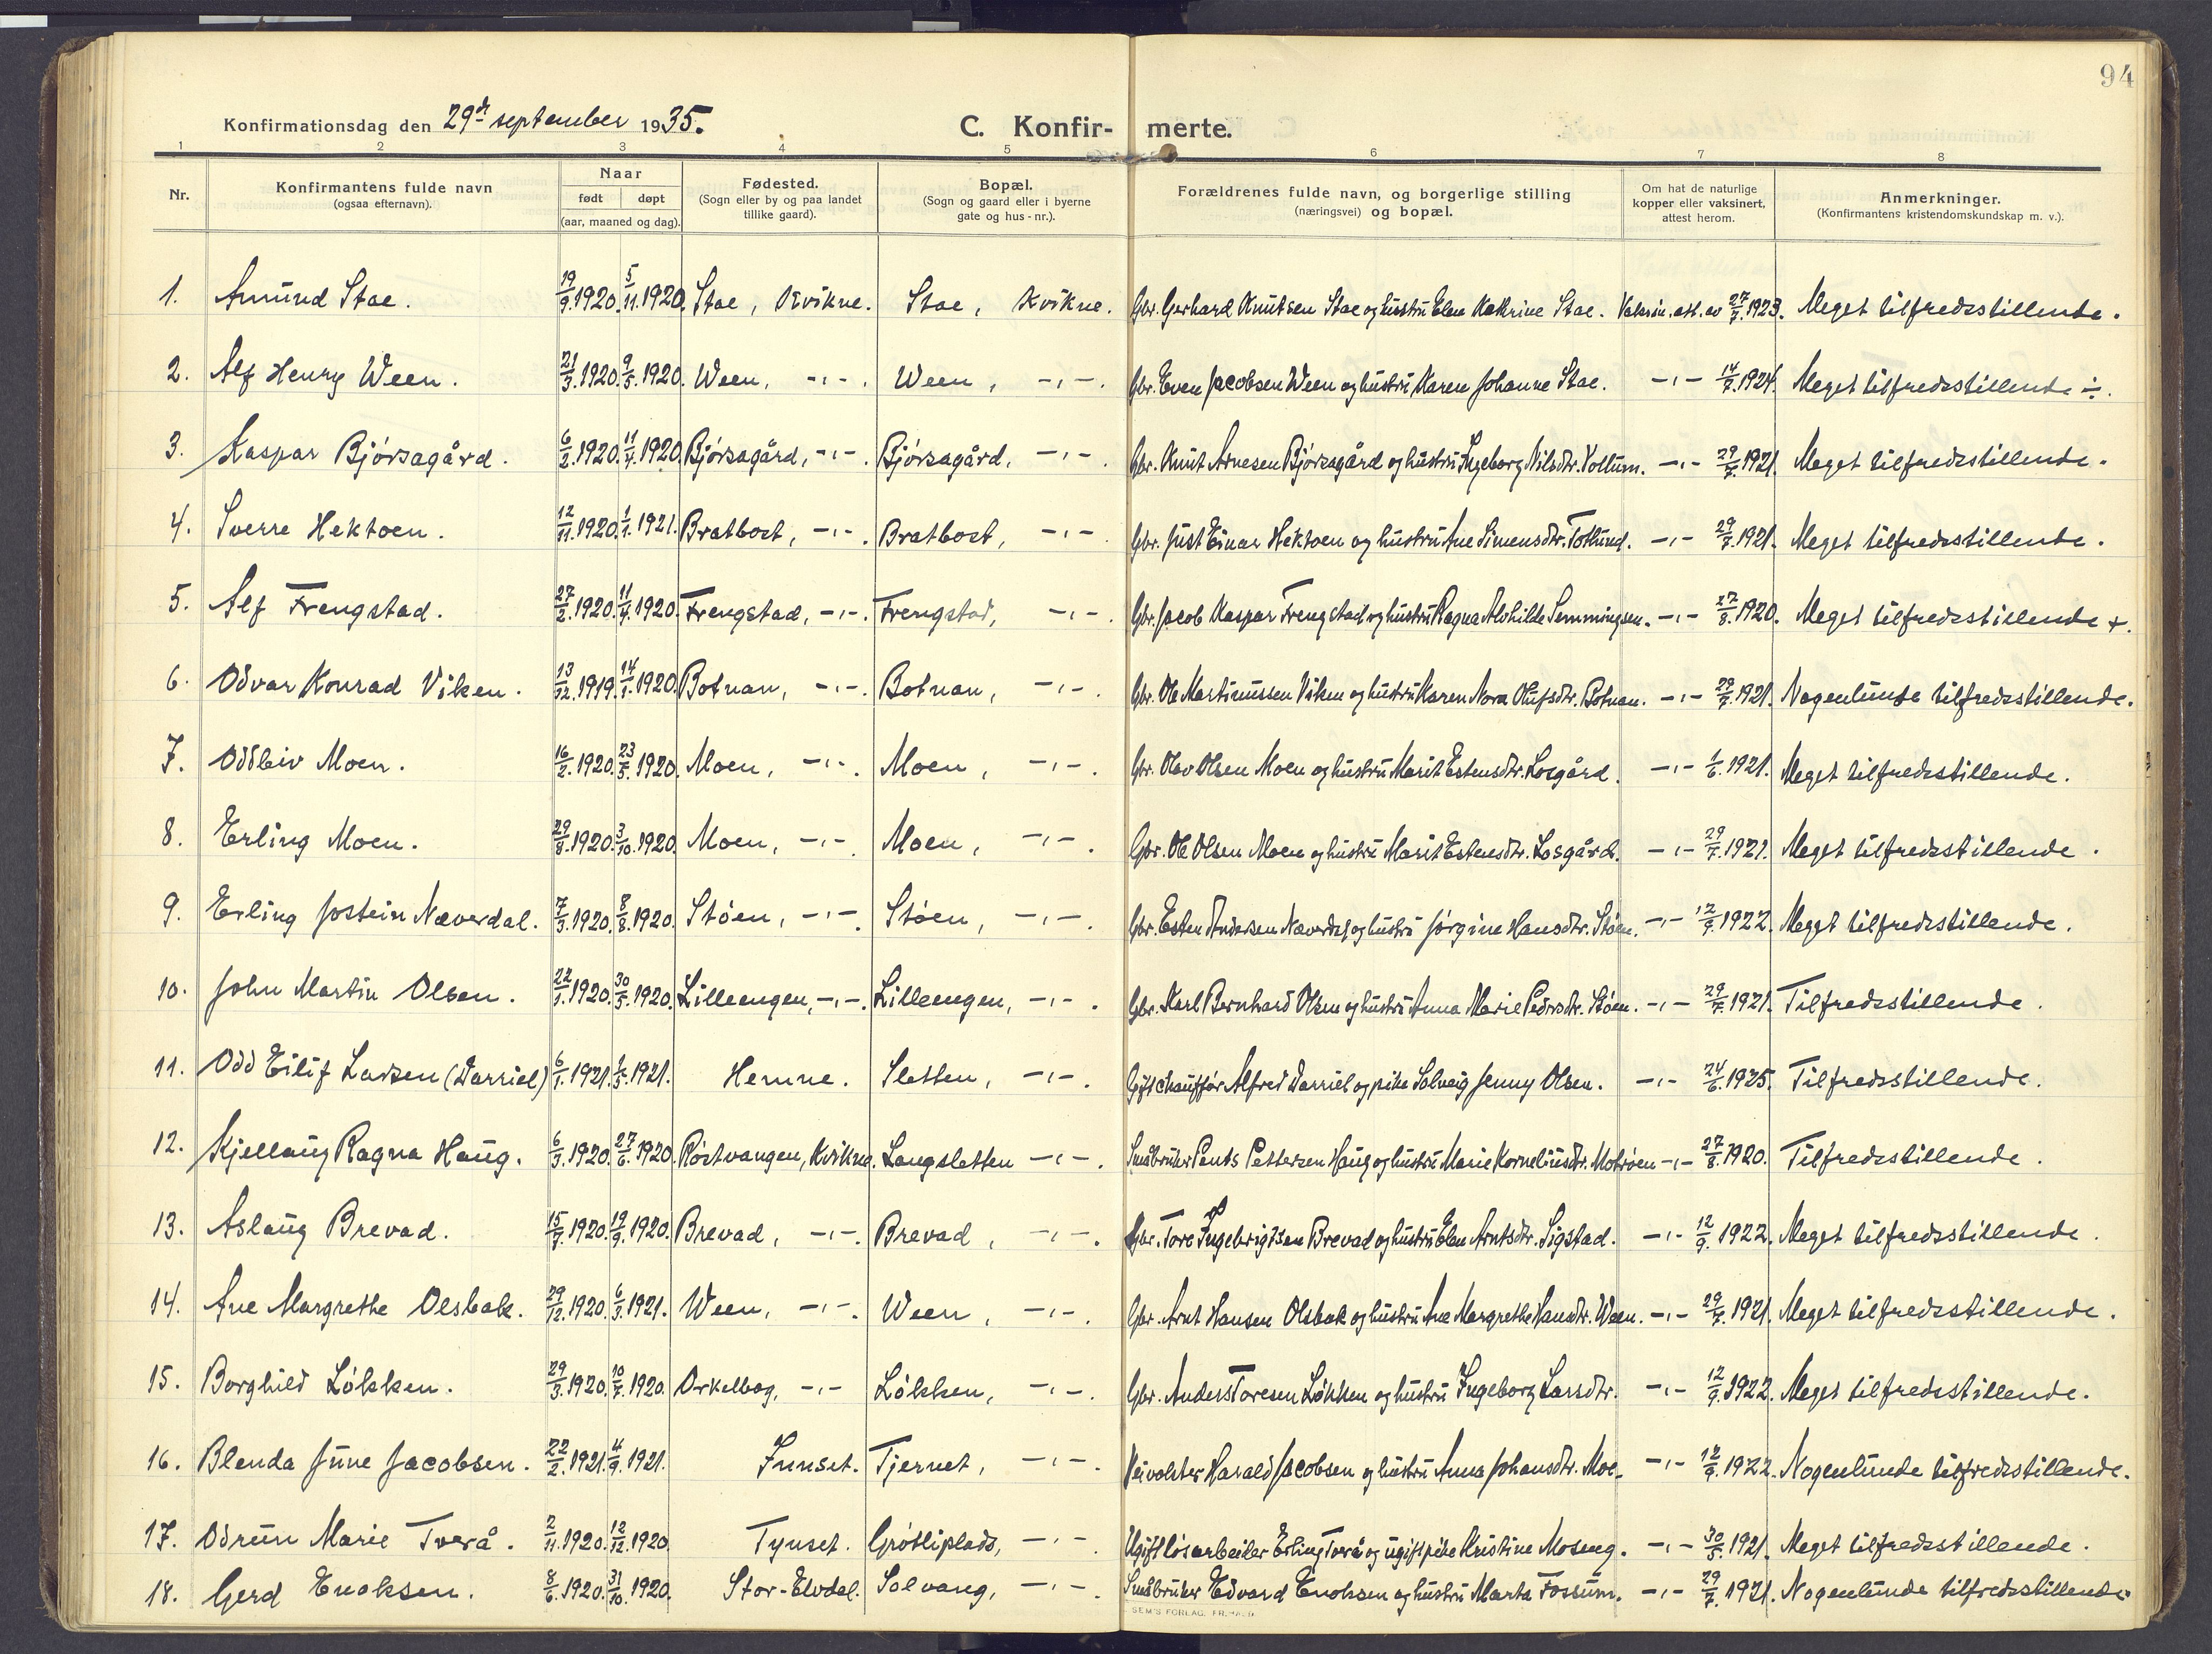 94
Konfirmationsdag den 29de september 1935.
C. Konfir- merte.
1 2 3 4 5 6 7 8
Nr. Konfirmantens fulde navn (ogsaa efternavn). Naar født døpt (aar, maaned og dag). Fødested. (Sogn eller by og paa landet tillike gaard). Bopæl. (Sogn og gaard eller i byerne gate og hus-nr.). Forældrenes fulde navn, og borgerlige stilling (næringsvei) og bopæl. Om hat de naturlige kopper eller vaksinert, attest herom. Anmerkninger. (Konfirmantens kristendomskundskap m. v.).
1. Amund Stae. 19/9.1920. 5/11.1920. Stae, Kvikne. Stae, Kvikne. Gbr. Gerhard Knutsen Stae og hustru Elen Katrine Stae. Vaksin. att. av 27/7.1923. Meget tilfredsstillende.
2. Alf Henry Ween. 21/3.1920. 9/5.1920. Ween, -,-. Ween, -,-. Gbr. Even Jacobsen Ween og hustru Karen Johanne Stae. -,- 14/7.1924. Meget tilfredsstillende ÷.
3. Kaspar Bjørsagård. 6/2.1920. 11/4.1920. Bjørsagård, -,-. Bjørsagård, -,-. Gbr. Knut Arnesen Bjørsagård og hustru Ingeborg Nilsdtr. Vollum. -,- 29/7.1921. Meget tilfredsstillende.
4. Sverre Hektoen. 12/11.1920. 1/1.1921. Bratbost, -,-. Bratbost, -,-. Gbr. Just Einar Hektoen og hustru Ane Simensdtr. Totlund. -,- 29/7.1921. Meget tilfredsstillende.
5. Alf Frengstad. 27/2.1920. 11/4.1920. Frengstad, -,-. Frengstad, -,-. Gbr. Jacob Kaspar Frengstad og hustru Ragna Alvhilde Semmingsen. -,- 27/8.1920. Meget tilfredsstillende +.
6. Odvar Konrad Viken. 13/12.1919. 14/1.1920. Botnan, -,-. Botnan, -,-. Gbr. Ole Martinussen Viken og hustru Karen Nora Olufsdtr. Botnan. -,- 29/7.1921. Nogenlunde tilfredsstillende.
7. Oddleiv Moen. 16/2.1920. 23/5.1920. Moen, -,-. Moen, -,-. Gbr. Olav Olsen Moen og hustru Marit Estensdtr. Losgård. -,- 1/6.1921. Meget tilfredsstillende.
8. Erling Moen. 29/8.1920. 3/10.1920. Moen, -,-. Moen, -,-. Gbr. Ole Olsen Moen og hustru Marit Estensdtr. Losgård. -,- 29/7.1921. Meget tilfredsstillende.
9. Erling Jostein Næverdal. 7/3.1920. 8/8.1920. Støen, -,-. Støen, -,-. Gbr. Esten Andersen Næverdal og hustru Jørgine Hansdtr. Støen. -,- 12/9.1922. Meget tilfredsstillende.
10. John Martin Olsen. 22/1.1920. 30/5.1920. Lilleengen, -,-. Lilleengen, -,-. Gbr. Karl Bernhard Olsen og hustru Anna Marie Pedersdtr. Støen. -,- 29/7.1921. Tilfredsstillende.
11. Odd Eilif Larsen (Darriel) 6/1.1921. 1/5.1921. Hemne. Sletten, -,-. Gift chauffør Alfred Darriel og pike Solveig Jenny Olsen. -,- 24/6.1935. Tilfredsstillende.
12. Kjellaug Ragna Haug. 6/3.1920. 27/6.1920. Røstvangen, Kvikne. Langsletten -,-. Småbruker Pents Pettersen Haug og hustru Marie Korneliusdtr. Motrøen -,- 27/8.1920. Tilfredsstillende.
13. Aslaug Brevad. 15/7.1920. 19/9.1920. Brevad, -,-. Brevad, -,-. Gbr. Tore Ingebrigtsen Brevad og hustru Elen Arntsdtr. Sigstad. -,- 12/9.1922. Meget tilfredsstillende.
14. Ane Margrethe Olsbak. 29/12.1920 6/3.1921. Ween, -,-. Ween, -,-. Gbr. Arnt Hansen Olsbak og hustru Ane Margrethe Hansdtr. Ween. -,- 29/7.1921. Meget tilfredsstillende.
15. Borghild Løkken. 29/3.1920. 10/7.1920. Orkelbog, -,- Løkken, -,-. Gbr. Anders Toresen Løkken og hustru Ingeborg Larsdtr. -,- 12/9.1922. Meget tilfredsstillende.
16. Blenda June Jacobsen. 22/2.1921. 4/9.1921. Innset. Tjernet, -,-. Veivokter Harald Jacobsen og hustru Anna Johansdtr. Moe. -,- 12/9.1922. Nogenlunde tilfredsstillende.
17. Odrun Marie Tverå. 2/11.1920. 12/12.1920. Tynset. Grøtliplads, -,-. Ugift løsarbeider Erling Tverå og ugift pike Kristine Moseng. -,- 30/5.1921. Meget tilfredsstillende.
18. Gerd Enoksen. 8/6.1920. 31/10.1920. Stor-Elvdal. Solvang, -,-. Småbruker Edvard Enoksen og hustru Marta Fossum. -,- 29/7.1921. Nogenlunde tilfredsstillende.
SEM'S FORLAG, FR.HALD.